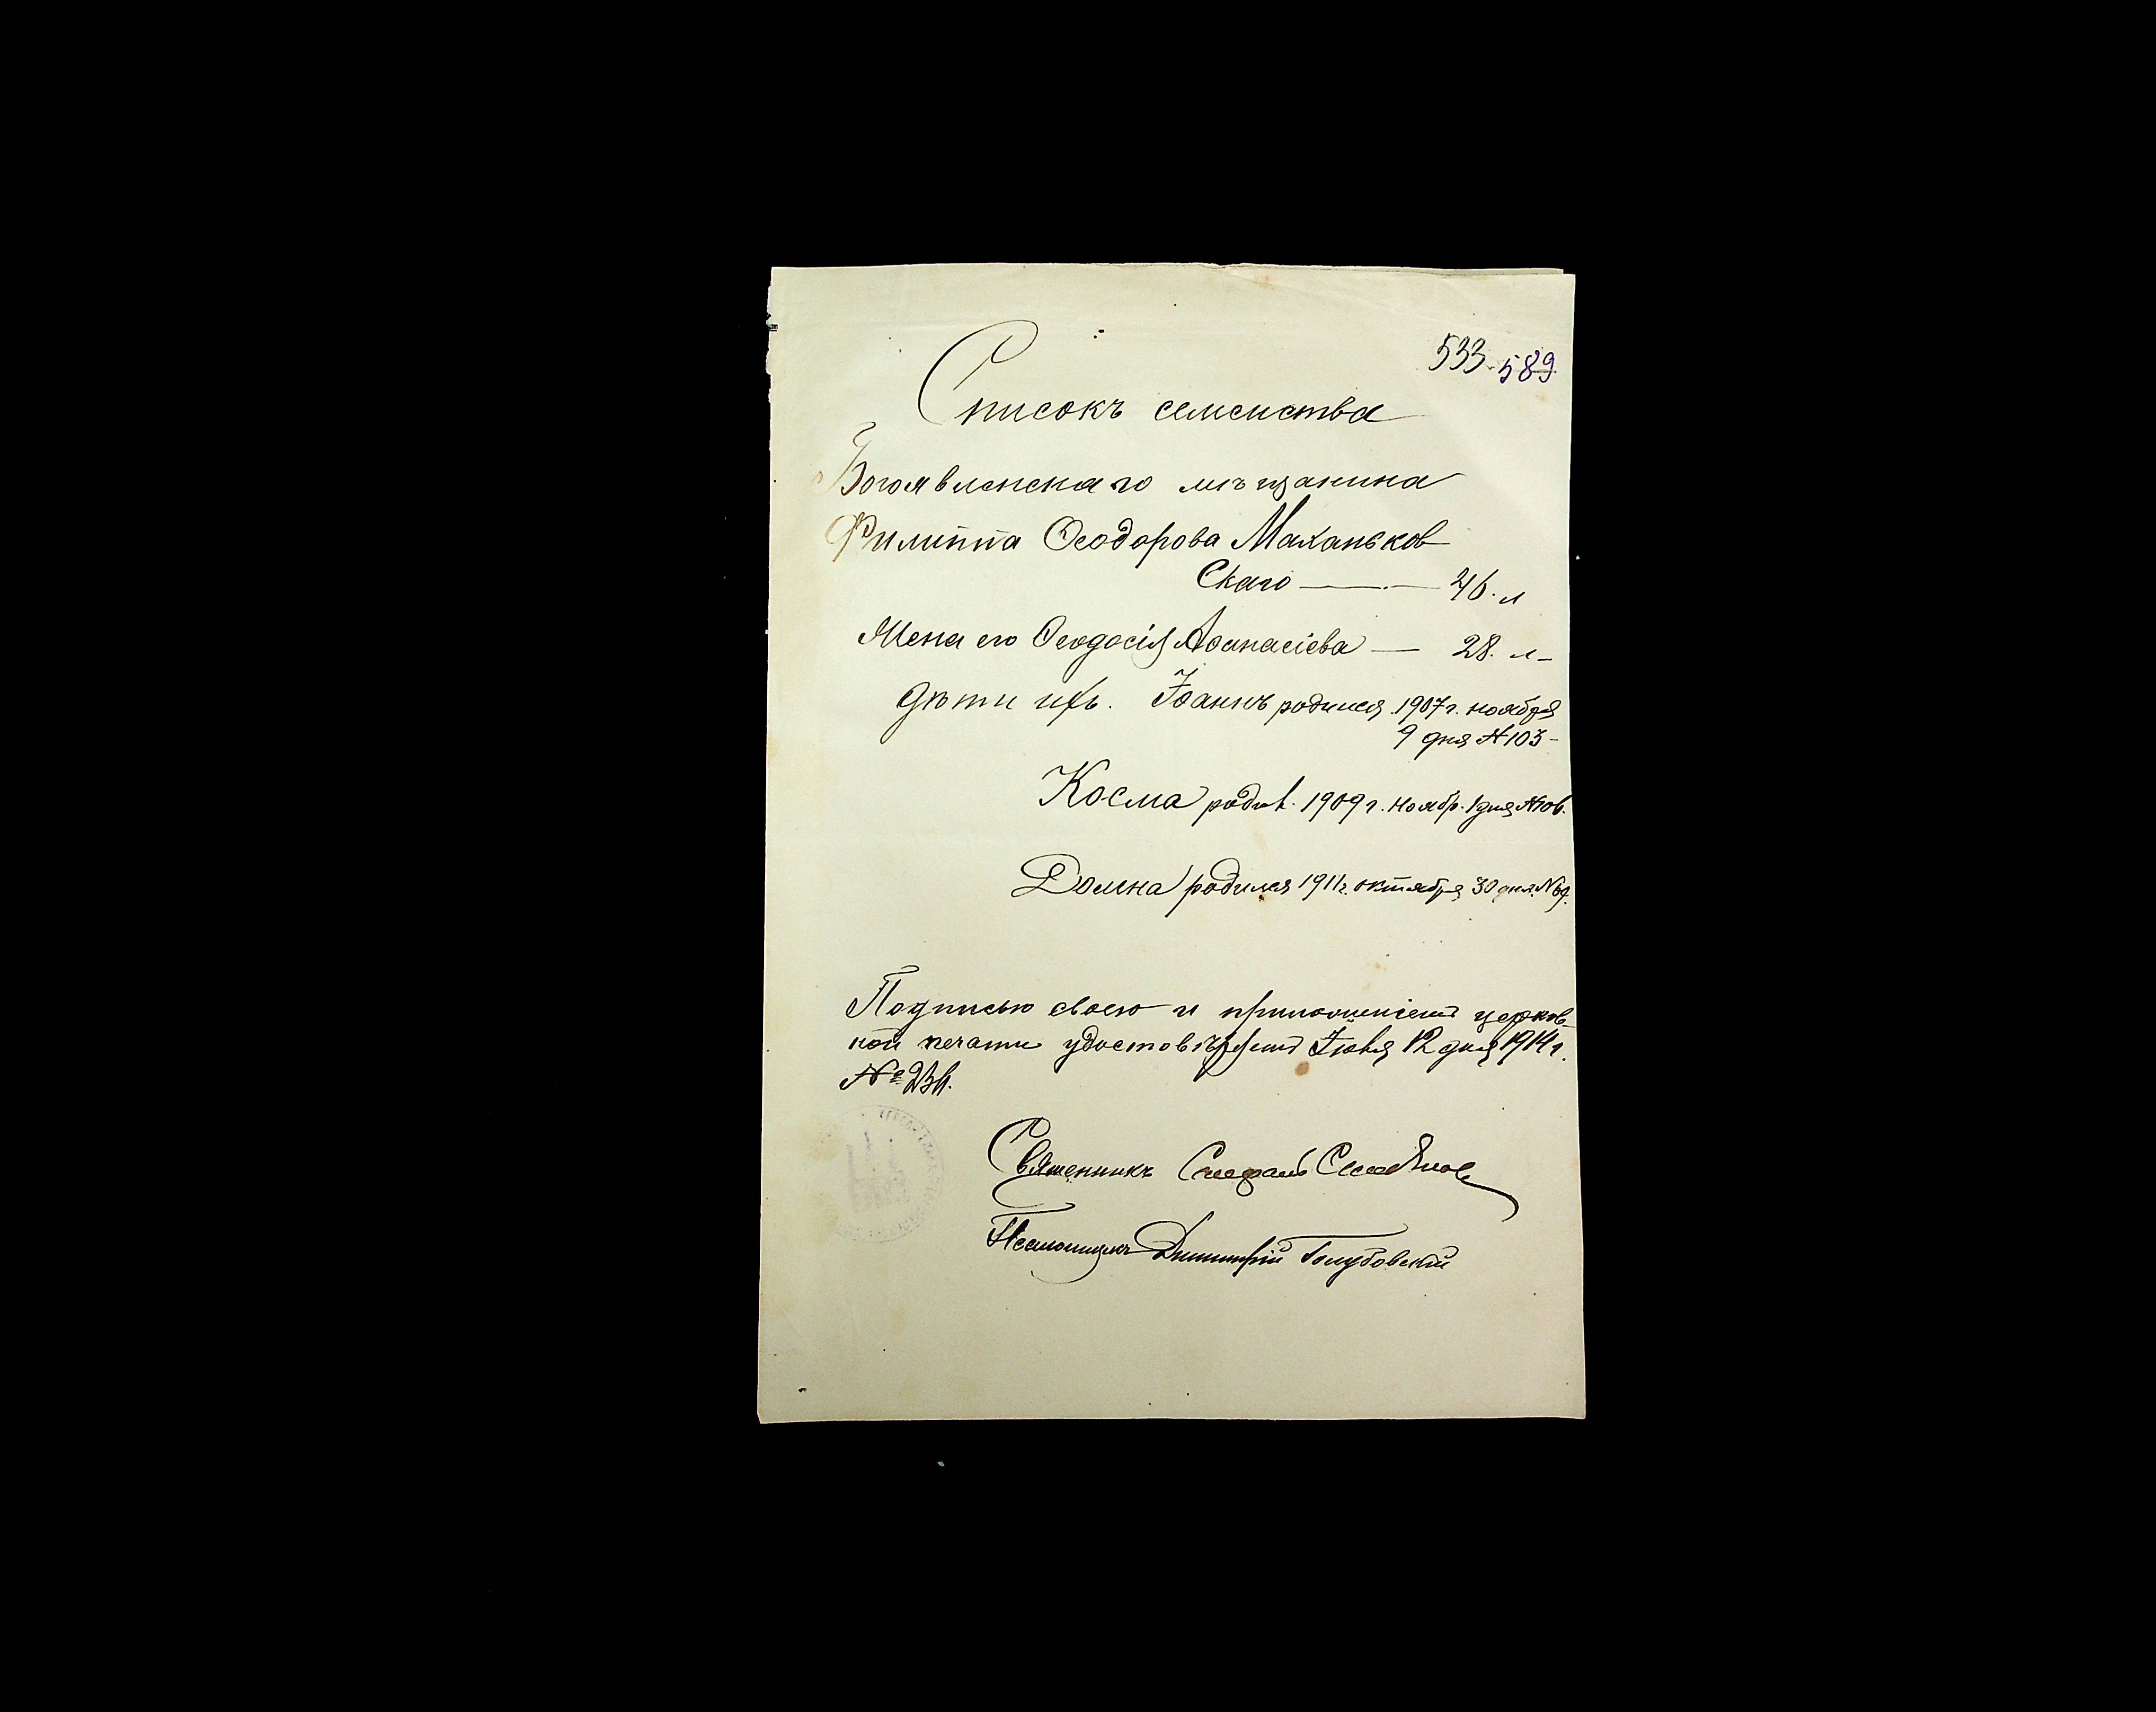 533 589
Списокъ семейства
Богоявленскаго мѣщанина
Филиппа Ѳеодорова Маханьков
скаго — 46. л
Жена его Ѳеодосія Аѳанасіева — 28. л
Дѣти ихъ. Іоаннъ родился 1907 г. ноября
9 дня № 103
Косма родил. 1909 г. ноябр. 1 дня № 106.
Домна родился 1911 г. октября 30 дня. №
Подписью своею и приложеніемъ церков-
ной печати удостовѣряемъ 12 дня 1914 г.
№
Священникъ Стефанъ
Псаломщикъ Димитрій Голубовскій